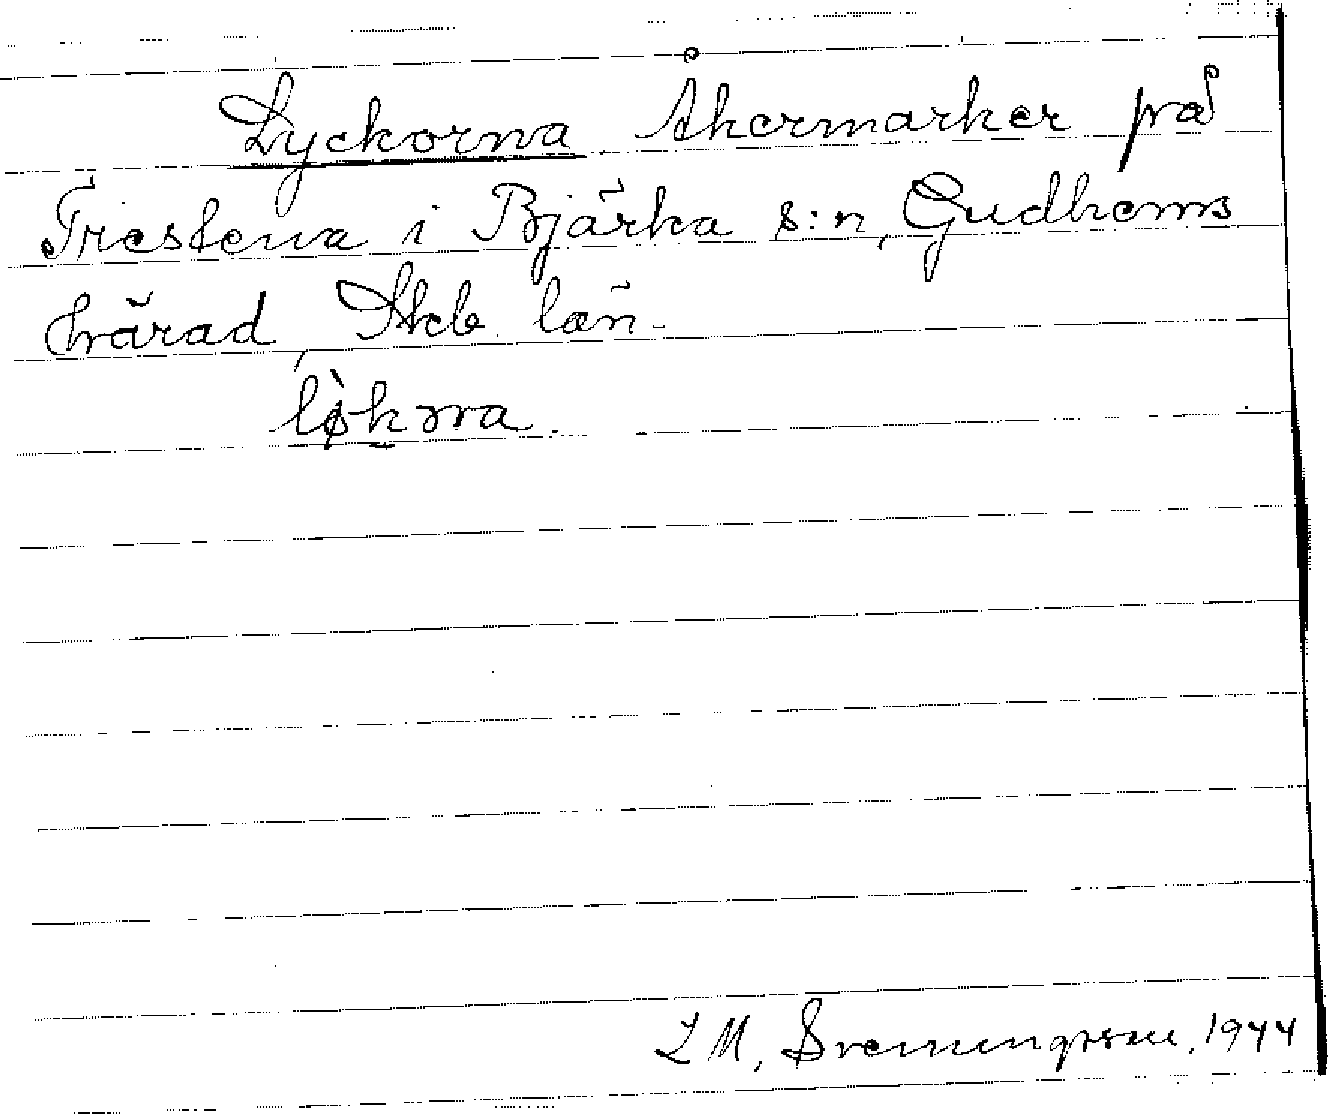 Lyckorna Åkermarker på
Trestena i Bjärka s:n, Gudhems
härad, Skb. län.
lø̀kna.
Z M, Svenungsson, 1944